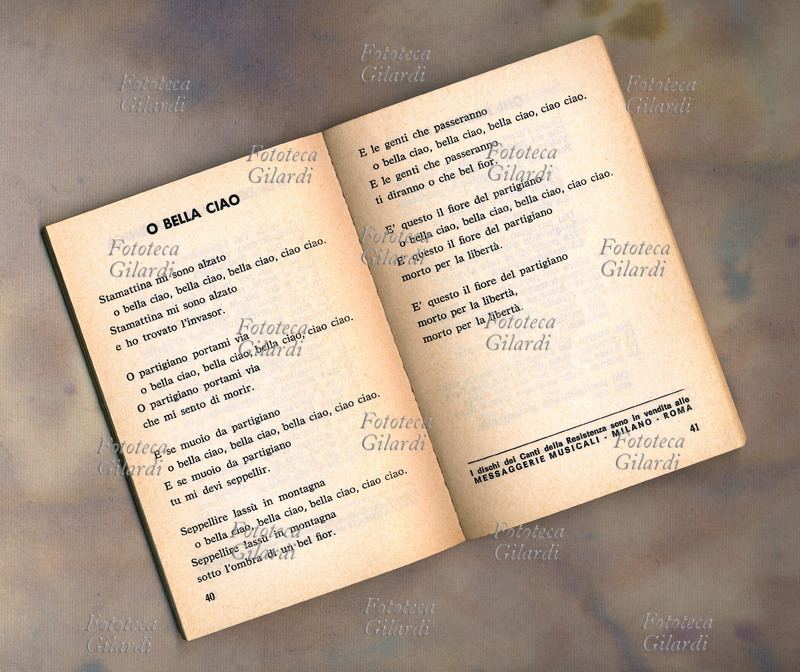 O BELLA CIAO
Stamattina mi sono alzato
o bella ciao, bella ciao, bella ciao, ciao ciao.
Stamattina mi sono alzato
e ho trovato l'invasor.
O partigiano portami via
o bella ciao, bella ciao, bella ciao, ciao ciao.
O partigiano portami via
che mi sento di morir.
E se muoio da partigiano
o bella ciao, bella ciao, bella ciao, ciao ciao.
E se muoio da partigiano
tu mi devi seppellir.
Seppellire lassù in montagna
o bella ciao, bella ciao, bella ciao, ciao ciao.
Seppellire lassù in montagna
sotto l'ombra di un bel fior.
40
E le genti che passeranno
o bella ciao, bella ciao, bella ciao, ciao ciao.
E le genti che passeranno
ti diranno o che bel fior.
E' questo il fiore del partigiano
o bella ciao, bella ciao, bella ciao, ciao ciao.
E' questo il fiore del partigiano
morto per la libertà.
E' questo il fiore del partigiano
morto per la libertà,
morto per la libertà.
I dischi dei Canti della Resistenza sono in vendita alle
MESSAGGERIE MUSICALI - MILANO - ROMA
41
Fototeca
Gilardi
Fototeca
Gilardi
Fototeca
Gilardi
Fototeca
Gilardi
Fototeca
Gilardi
Fototeca
Gilardi
Fototeca
Gilardi
Fototeca
Gilardi
Fototeca
Gilardi
Fototeca
Gilardi
Fototeca
Gilardi
Fototeca
Gilardi
Fototeca
Gilardi
Fototeca
Gilardi
Fototeca
Gilardi
Fototeca
Gilardi
Fototeca
Gilardi
Fototeca
Gilardi